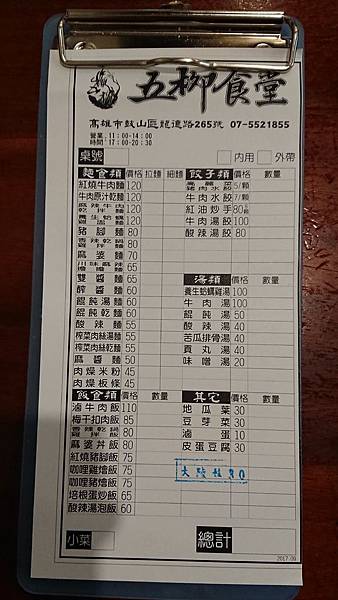 五柳食堂
高雄市鼓山區龍德路265號 07-5521855
營業 11:00-14:00
時間 17:00-20:30
桌號 內用 外帶
麵食類 價格 拉麵 細麵
紅燒牛肉麵 120
牛肉原汁乾麵 120
麻辣牛肉乾拌麵 120
養生蛤蠣雞湯麵 120
豬腳麵 80
香辣乾鍋雞拌麵 90
麻婆麵 70
川味麻辣擔擔麵 65
炸醬麵 60
餛飩湯麵 60
餛飩乾麵 60
酸辣麵 55
榨菜肉絲湯麵 55
榨菜肉絲乾麵 55
麻醬麵 50
肉燥米粉 45
肉燥板條 45
飯食類 價格 數量
滷牛肉飯 110
梅干扣肉飯 85
香辣乾鍋雞拌飯 80
麻婆丼飯 80
紅燒豬腳飯 75
咖哩雞燴飯 65
咖哩豬燴飯 65
培根蛋炒飯 65
酸辣湯泡飯 60
小菜
餃子類 價格 數量
高麗菜豬肉水餃 5/顆
牛肉水餃 7/顆
紅油炒手 80
牛肉湯餃 100
酸辣湯餃 80
湯類 價格 數量
養生蛤蠣雞湯 100
牛肉湯 100
餛飩湯 50
酸辣湯 40
苦瓜排骨湯 40
貢丸湯 40
味噌湯 20
其它 價格 數量
地瓜葉 30
豆芽菜 30
滷蛋 10
皮蛋豆腐 30
總計
2017.09